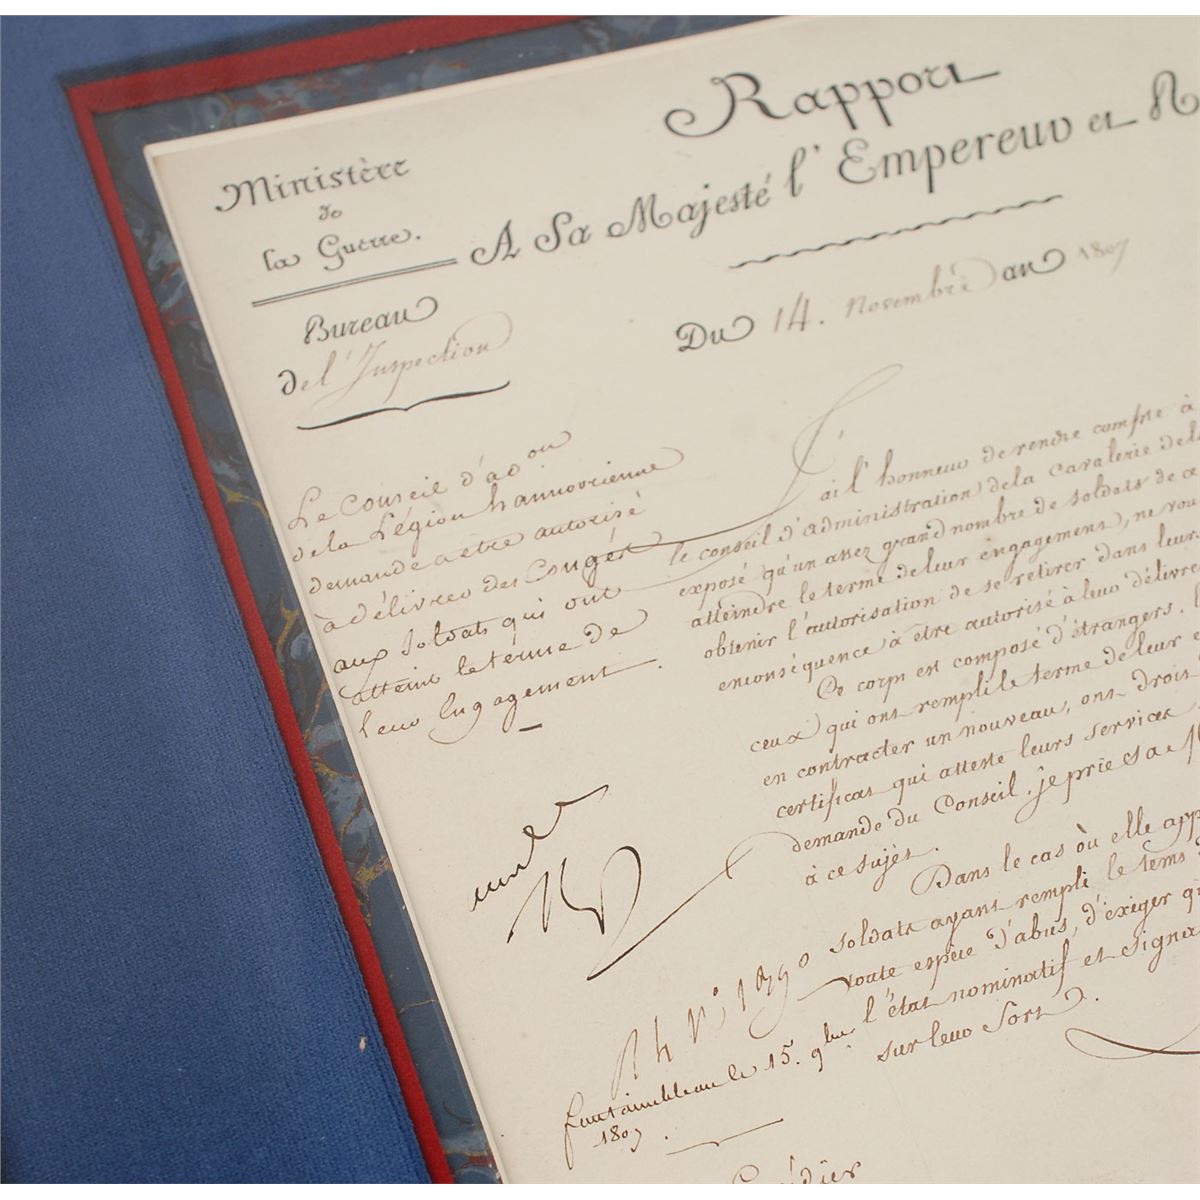 Rapport
A Sa Majesté l'Empereur et R
Ministère
de
la Guerre.
Bureau
de l'Inspection
Du 14. novembre an 1807
Le Conseil d'adon
de la Légion hannovrienne
demande a etre autorisé
à délivrer des Congés
aux soldats qui ont
atteint le terme de
leur Engagement.
J'ai l'honneur de rendre compte à
le conseil d'administration de la Cavalerie de la
exposé qu'un assez grand nombre de soldats de ce
atteindre le terme de leur engagement, ne vou
obtenir l'autorisation de se retirer dans leur
en conséquence à etre autorisé à leur délivre
Ce corps est composé d'étrangers.
ceux qui ont rempli le terme de leur e
en contracter un nouveau, ont droit
certificat qui atteste leurs services
demande du Conseil. je prie sa M
à ce sujet.
Dans le cas où elle app
soldats ayant rempli le tems
toute espèce d'abus, d'exiger q
l'état nominatif et signa
sur leur sort.
fontainebleau le 15. 9bre
1807.